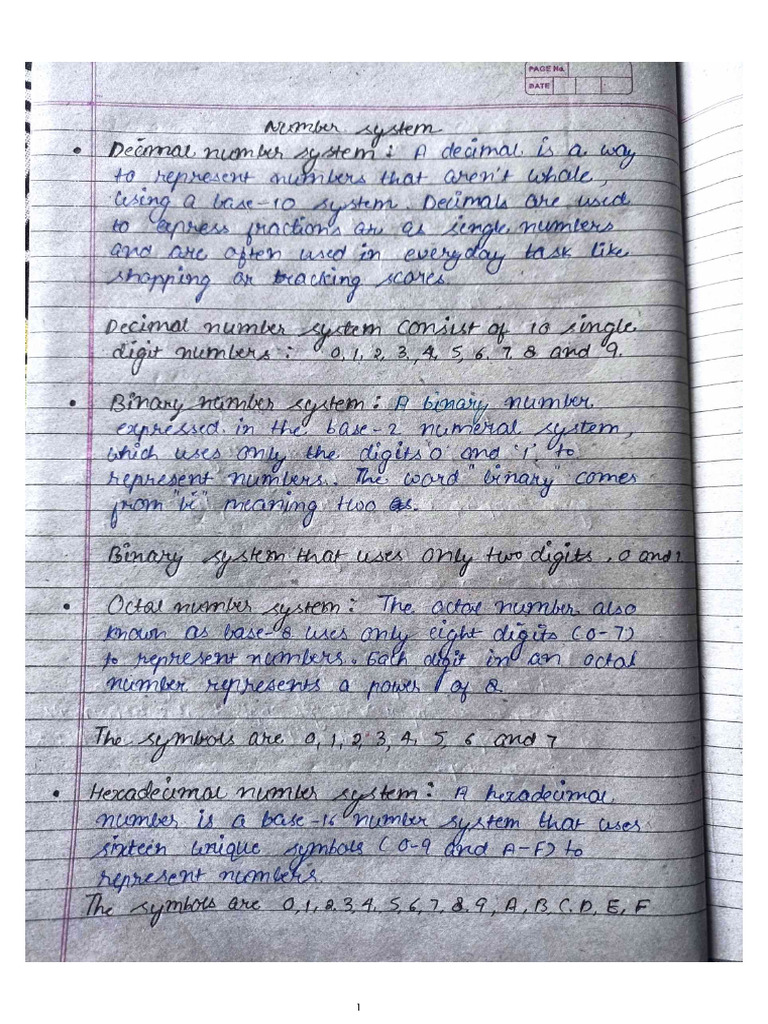 PAGE No.
DATE
Number system
• Decimal number system : A decimal is a way
to represent numbers that aren't whole,
using a base-10 system. Decimals are used
to express fractions ar as single numbers
and are often used in everyday task like
shopping or tracking scores.
Decimal number system consist of 10 single
digit numbers : 0, 1, 2, 3, 4, 5, 6, 7, 8 and 9.
• Binary number system : A binary number
expressed in the base-2 numeral system,
which uses only the digits '0' and '1', to
represent numbers. The word "binary" comes
from "bi" meaning two
Binary system that uses only two digits, 0 and 1
• Octal number system : The octal number also
known as base-8 uses only eight digits (0-7)
to represent numbers. Each digit in an octal
number represents a power of 8.
The symbols are 0, 1, 2, 3, 4, 5, 6 and 7
• Hexadecimal number system : A hexadecimal
number is a base-16 number system that uses
sixteen unique symbols (0-9 and A-F) to
represent numbers.
The symbols are 0, 1, 2, 3, 4, 5, 6, 7, 8, 9, A, B, C, D, E, F
1